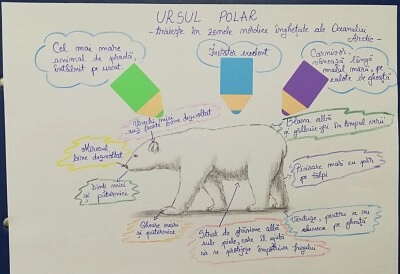 URSUL POLAR
- trăiește în zonele nordice înghețate ale Oceanului
Arctic -
Cel mai mare
animal de pradă,
întâlnit pe uscat.
Înotător excelent
Carnivor-
vânează lângă
malul mării, pe
calote de gheață
Urechi mici
dar foarte bine dezvoltat
Mirosul
bine dezvoltat
Dinți mici
și puternici
Gheare mari
și puternice
Strat de grăsime albă
sub piele, care îl ajută
să se protejeze împotriva frigului
Blana albă
și gălbuie-gri în timpul verii
Picioare mari cu păr
pe tălpi
Ventuze, pentru a nu
aluneca pe gheață